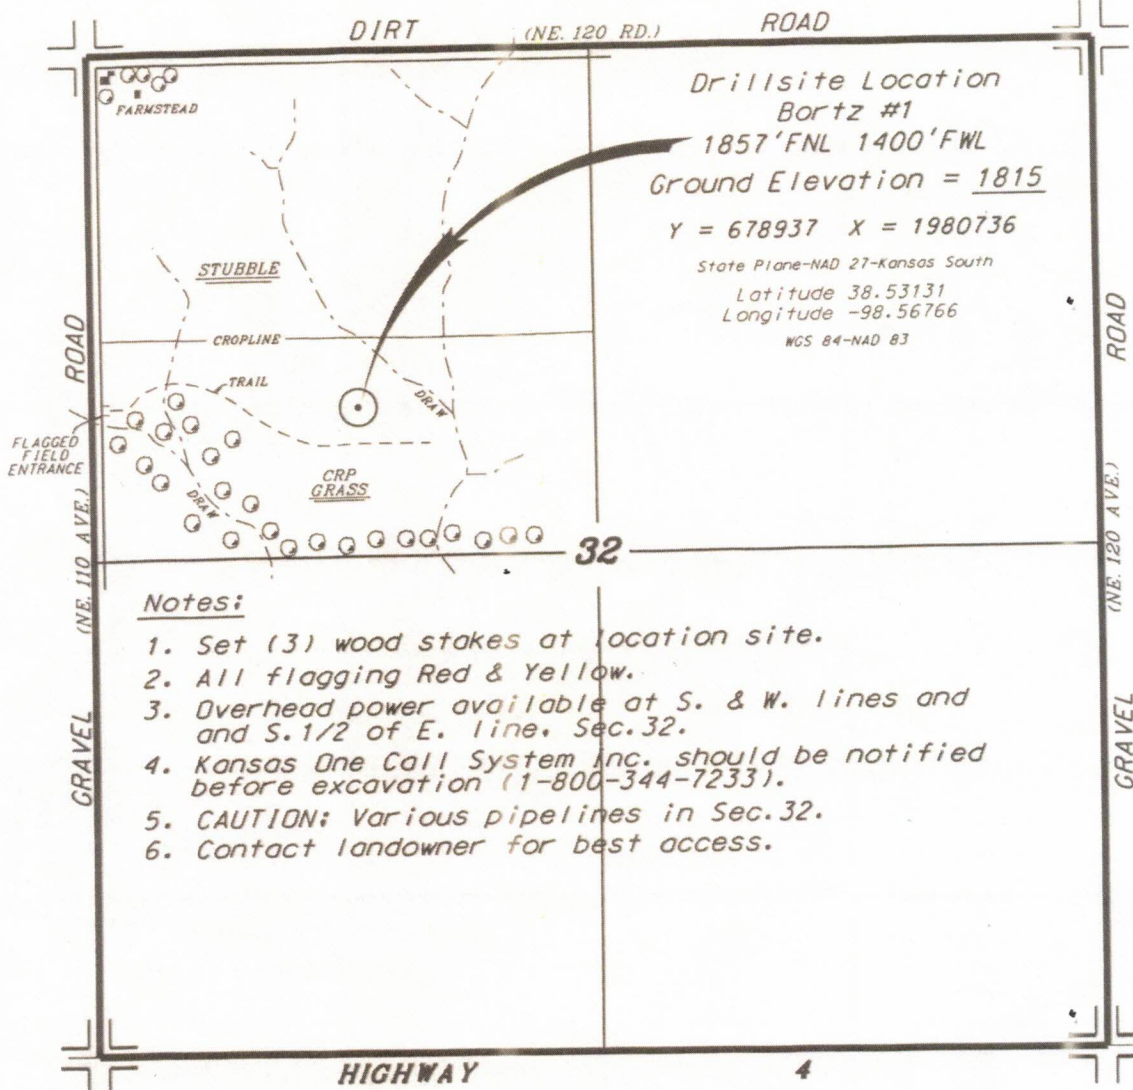 DIRT (NE. 120 RD.) ROAD
FARMSTEAD
Drillsite Location
Bortz #1
1857'FNL 1400'FWL
Ground Elevation = 1815
Y = 678937 X = 1980736
State Plane-NAD 27-Kansas South
Latitude 38.53131
Longitude -98.56766
WGS 84-NAD 83
STUBBLE
CROPLINE
TRAIL
DRAW
CRP
GRASS
DRAW
FLAGGED
FIELD
ENTRANCE
GRAVEL (NE. 110 AVE.) ROAD
GRAVEL (NE. 120 AVE.) ROAD
32
Notes:
1. Set (3) wood stakes at location site.
2. All flagging Red & Yellow.
3. Overhead power available at S. & W. lines and
and S.1/2 of E. line. Sec.32.
4. Kansas One Call System Inc. should be notified
before excavation (1-800-344-7233).
5. CAUTION: Various pipelines in Sec.32.
6. Contact landowner for best access.
HIGHWAY 4